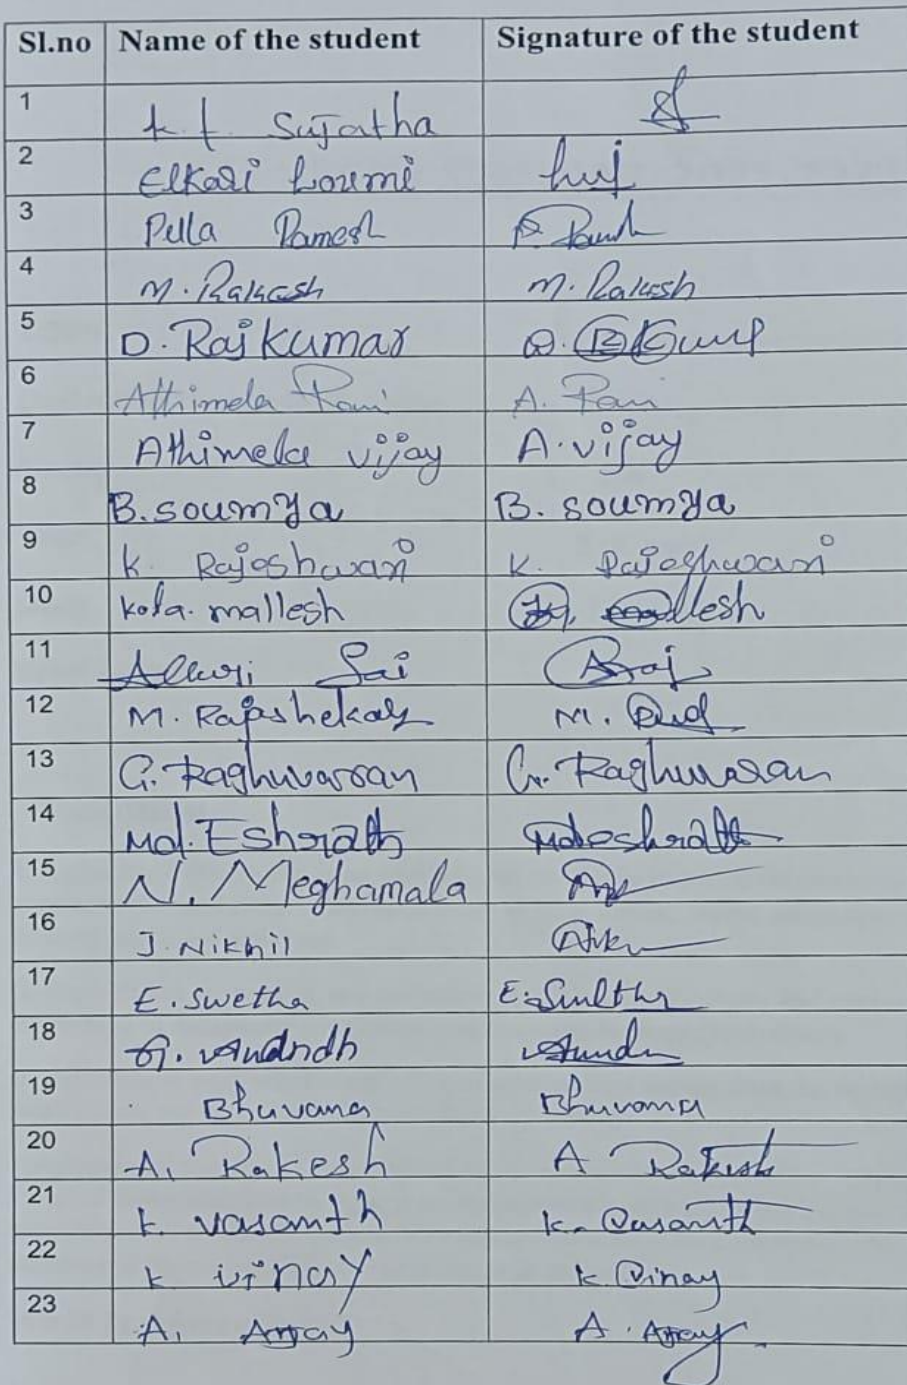 Sl.no Name of the student Signature of the student
1 k. k. Sujatha
2 Elkari Laxmi
3 Pulla Ramesh
4 M. Rakesh M. Rakesh
5 D. Raj Kumar D.
6 Athimela Rani A. Rani
7 Athimela vijay A. vijay
8 B. soumya B. soumya
9 K. Rajeshwari K. Rajeshwari
10 kola. mallesh
11 Alluri Sai
12 M. Rajashekar M.
13 G. Raghuvaran G. Raghuvaran
14 Md. Eshrath
15 N. Meghamala
16 J. Nikhil
17 E. Swetha E.
18 G. Anandh
19 Bhuvana Bhuvana
20 A. Rakesh A Rakesh
21 k. vasanth k. Vasanth
22 k vinay k. Vinay
23 A. Ajay A. Ajay